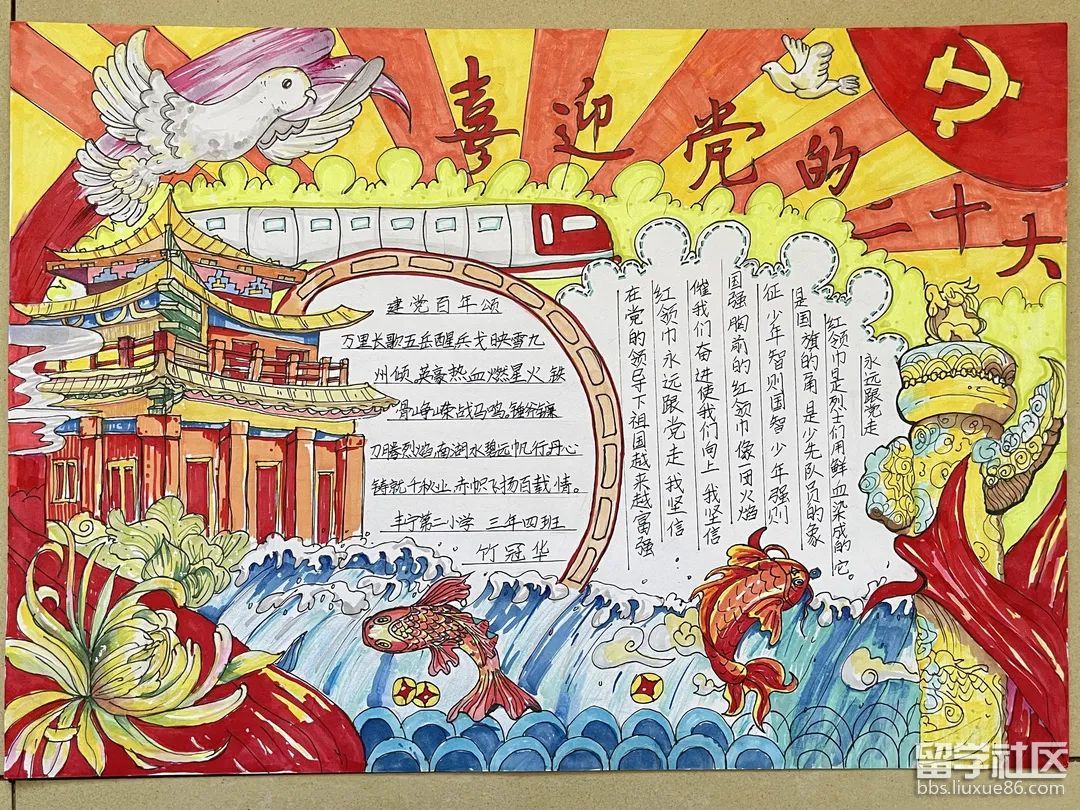 喜迎党的
二十大
建党百年颂
万里长歌五岳醒兵戈映雪九
州倾英豪热血燃星火铁
骨峥嵘战马鸣锤镰
刀腾烈焰南湖水碧远帆行丹心
铸就千秋业赤帜飞扬百载情。
丰宁第二小学 三年四班
竹冠华
永远跟党走
红领巾是烈士们用鲜血染成的它。
是国旗的角 是少先队员的象
征少年智则国智少年强则
国强胸前的红领巾像一团火焰
催我们奋进使我们向上 我坚信
红领巾永远跟党走我坚信
在党的领导下祖国越来越富强
留学社区
bbs.liuxue86.com